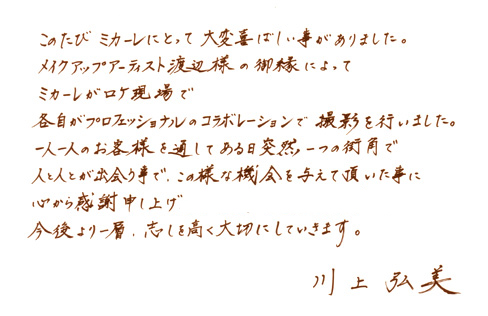 このたび ミカーレにとって 大変喜ばしい事がありました。
メイクアップアーティスト渡辺様の御縁によって
ミカーレがロケ現場で
各自がプロフェッショナルのコラボレーションで 撮影を行いました。
一人一人のお客様を通してある日突然、一つの街角で
人と人とが出会う事で、この様な機会を与えて頂いた事に
心から感謝申し上げ
今後より一層、志しを高く大切にしていきます。
川上 弘美